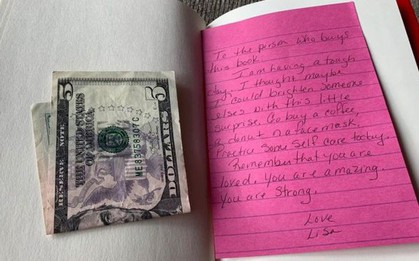 5
RESERVE NOTE
THE UNITED STATES
OF AMERICA
DOLLARS
To the person who buys
this book:
I am having a tough
day. I thought maybe
I could brighten someone
elses with this little
surprise. Go buy a coffee,
a donut or a face mask.
Practice some self care today.
Remember that you are
loved. You are amazing.
You are strong.
Love
Lisa